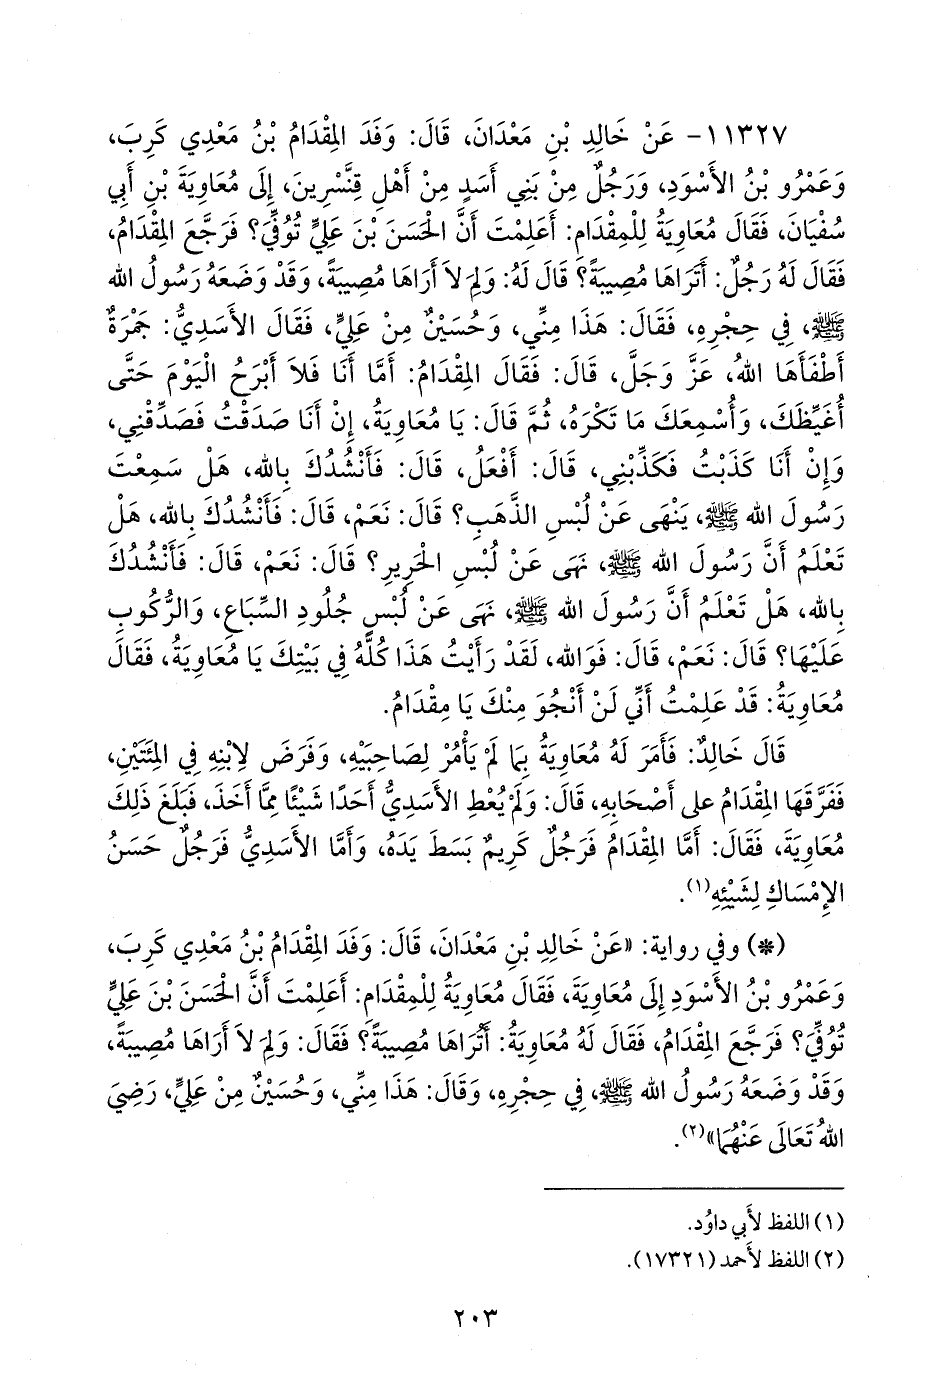 ١١٣٢٧- عَنْ خَالِدِ بْنِ مَعْدَانَ، قَالَ: وَفَدَ المِقْدَامُ بْنُ مَعْدِي كَرِبَ،
وَعَمْرُو بْنُ الأَسْوَدِ، وَرَجُلٌ مِنْ بَنِي أَسَدٍ مِنْ أَهْلِ قِنَّسْرِينَ، إِلَى مُعَاوِيَةَ بْنِ أَبِي
سُفْيَانَ، فَقَالَ مُعَاوِيَةُ لِلْمِقْدَامِ: أَعَلِمْتَ أَنَّ الحَسَنَ بْنَ عَلِيٍّ تُوُفِّيَ؟ فَرَجَّعَ المِقْدَامُ،
فَقَالَ لَهُ رَجُلٌ: أَتَرَاهَا مُصِيبَةً؟ قَالَ لَهُ: وَلِمَ لاَ أَرَاهَا مُصِيبَةً، وَقَدْ وَضَعَهُ رَسُولُ الله
ﷺ، فِي حِجْرِهِ، فَقَالَ: هَذَا مِنِّي، وَحُسَيْنٌ مِنْ عَلِيٍّ، فَقَالَ الأَسَدِيُّ: جَمْرَةٌ
أَطْفَأَهَا اللهُ، عَزَّ وَجَلَّ، قَالَ: فَقَالَ المِقْدَامُ: أَمَّا أَنَا فَلاَ أَبْرَحُ الْيَوْمَ حَتَّى
أُغَيِّظَكَ، وَأُسْمِعَكَ مَا تَكْرَهُ، ثُمَّ قَالَ: يَا مُعَاوِيَةُ، إِنْ أَنَا صَدَقْتُ فَصَدِّقْنِي،
وَإِنْ أَنَا كَذَبْتُ فَكَذِّبْنِي، قَالَ: أَفْعَلُ، قَالَ: فَأَنْشُدُكَ بِالله، هَلْ سَمِعْتَ
رَسُولَ الله ﷺ، يَنْهَى عَنْ لُبْسِ الذَّهَبِ؟ قَالَ: نَعَمْ، قَالَ: فَأَنْشُدُكَ بِالله، هَلْ
تَعْلَمُ أَنَّ رَسُولَ الله ﷺ، نَهَى عَنْ لُبْسِ الحَرِيرِ؟ قَالَ: نَعَمْ، قَالَ: فَأَنْشُدُكَ
بِالله، هَلْ تَعْلَمُ أَنَّ رَسُولَ الله ﷺ، نَهَى عَنْ لُبْسِ جُلُودِ السِّبَاعِ، وَالرُّكُوبِ
عَلَيْهَا؟ قَالَ: نَعَمْ، قَالَ: فَوَالله، لَقَدْ رَأَيْتُ هَذَا كُلَّهُ فِي بَيْتِكَ يَا مُعَاوِيَةُ، فَقَالَ
مُعَاوِيَةُ: قَدْ عَلِمْتُ أَنِّي لَنْ أَنْجُوَ مِنْكَ يَا مِقْدَامُ.
قَالَ خَالِدٌ: فَأَمَرَ لَهُ مُعَاوِيَةُ بِمَا لَمْ يَأْمُرْ لِصَاحِبَيْهِ، وَفَرَضَ لاِبْنِهِ فِي المِئَتَيْنِ،
فَفَرَّقَهَا المِقْدَامُ على أَصْحَابِهِ، قَالَ: وَلَمْ يُعْطِ الأَسَدِيُّ أَحَدًا شَيْئًا مِمَّا أَخَذَ، فَبَلَغَ ذَلِكَ
مُعَاوِيَةَ، فَقَالَ: أَمَّا المِقْدَامُ فَرَجُلٌ كَرِيمٌ بَسَطَ يَدَهُ، وَأَمَّا الأَسَدِيُّ فَرَجُلٌ حَسَنُ
الإِمْسَاكِ لِشَيْئِهِ(١).
(*) وفي رواية: «عَنْ خَالِدِ بْنِ مَعْدَانَ، قَالَ: وَفَدَ المِقْدَامُ بْنُ مَعْدِي كَرِبَ،
وَعَمْرُو بْنُ الأَسْوَدِ إِلَى مُعَاوِيَةَ، فَقَالَ مُعَاوِيَةُ لِلْمِقْدَامِ: أَعَلِمْتَ أَنَّ الحَسَنَ بْنَ عَلِيٍّ
تُوُفِّيَ؟ فَرَجَّعَ المِقْدَامُ، فَقَالَ لَهُ مُعَاوِيَةُ: أَتُرَاهَا مُصِيبَةً؟ فَقَالَ: وَلِمَ لاَ أَرَاهَا مُصِيبَةً،
وَقَدْ وَضَعَهُ رَسُولُ الله ﷺ، فِي حِجْرِهِ، وَقَالَ: هَذَا مِنِّي، وَحُسَيْنٌ مِنْ عَلِيٍّ، رَضِيَ
اللهُ تَعَالَى عَنْهُمَا»(٢).
(١) اللفظ لأَبي داوُد.
(٢) اللفظ لأَحمد (١٧٣٢١).
٢٠٣